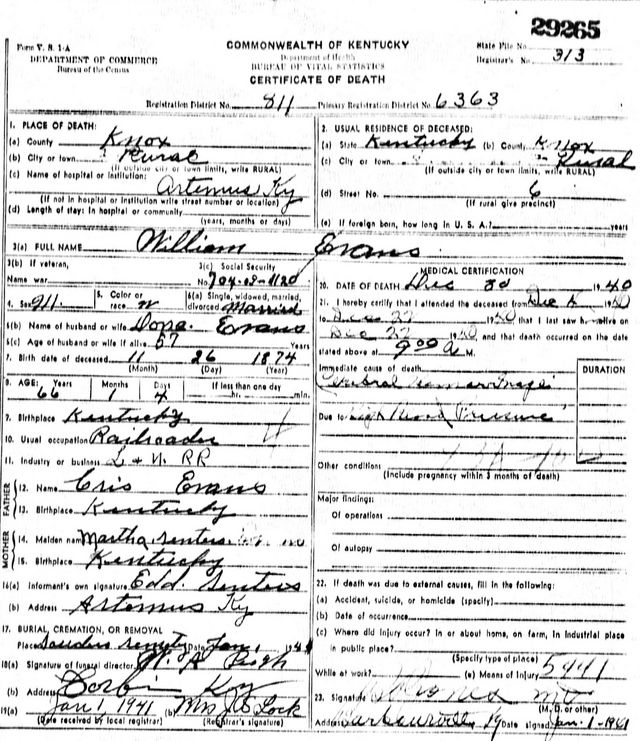 29265
Form V. S. 1-A
DEPARTMENT OF COMMERCE
Bureau of the Census
COMMONWEALTH OF KENTUCKY
Department of Health
BUREAU OF VITAL STATISTICS
CERTIFICATE OF DEATH
State File No.
Registrar's No. 313
Registration District No. 811 Primary Registration District No. 6363
1. PLACE OF DEATH:
(a) County Knox
(b) City or town Rural
(If outside city or town limits, write RURAL)
(c) Name of hospital or institution:
Artemus Ky
(If not in hospital or institution write street number or location)
(d) Length of stay: In hospital or community
(years, months or days)
2. USUAL RESIDENCE OF DECEASED:
(a) State Kentucky (b) County Knox
(c) City or town Rural
(If outside city or town limits, write RURAL)
(d) Street No. 6
(If rural give precinct)
(e) If foreign born, how long in U. S. A.? years
3(a) FULL NAME William Evans
3(b) If veteran,
Name war
3(c) Social Security
No. 704-08-1120
4. Sex M
5. Color or
race W
6(a) Single, widowed, married,
divorced Married
6(b) Name of husband or wife Evans
6(c) Age of husband or wife if alive 57 Years
7. Birth date of deceased 11 26 1874
(Month) (Day) (Year)
8. AGE: Years Months Days If less than one day
66 1 4 hr. min.
9. Birthplace Kentucky
10. Usual occupation Railroader
11. Industry or business L + N RR
FATHER
12. Name Cris Evans
13. Birthplace Kentucky
MOTHER
14. Maiden name Martha Senters
15. Birthplace Kentucky
16(a) Informant's own signature Edd Senters
(b) Address Artemus Ky
17. BURIAL, CREMATION, OR REMOVAL
Place Date Jan 1 194
18(a) Signature of funeral director
(b) Address Corbin Ky
19(a) Jan 1, 1941 (b) Mrs Lock
(Date received by local registrar) (Registrar's signature)
MEDICAL CERTIFICATION
20. DATE OF DEATH Dec 30 1940
21. I hereby certify that I attended the deceased from Dec 1940
to Dec 27 1940 that I last saw h alive on
Dec 27 1940 and that death occurred on the date
stated above at 9 00 A M.
Immediate cause of death
Cerebral Hemorrhage
DURATION
Due to High Blood Pressure
Other conditions
(Include pregnancy within 3 months of death)
Major findings:
Of operations
Of autopsy
22. If death was due to external causes, fill in the following:
(a) Accident, suicide, or homicide (specify)
(b) Date of occurrence
(c) Where did injury occur? In or about home, on farm, in industrial place
in public place?
(Specify type of place)
While at work? (e) Means of Injury 5441
23. Signature MD
(M. D. or other)
Address Barbourville Ky Date signed Jan-1-1941